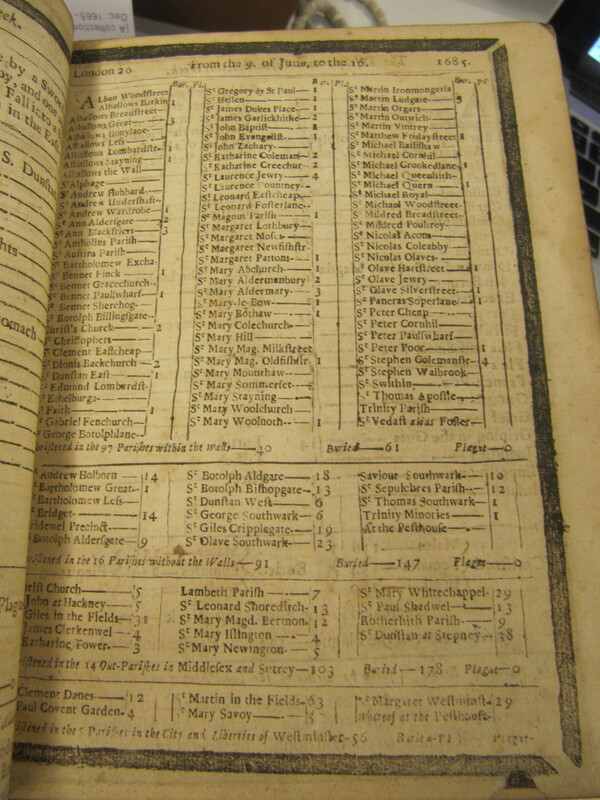 [A collection
Dec 1665-
London 26
From the 9. of June, to the 16.
1685.
Bur. Pl.
ALban Woodstreet
Alhallows Barkin 1
Alhallows Breadstreet
Alhallows Great 3
Alhallows Honylane
Alhallows Less
Alhallows Lombardstr 1
Alhallows Stayning 1
Alhallows the Wall
St Alphage
St Andrew Hubbard
St Andrew Undershaft
St Andrew Wardrobe 1
St Ann Aldersgate 2
St Ann Blackfriers 3
St Antholins Parish
St Austins Parish
St Bartholomew Excha.
St Bennet Finck 1
St Bennet Gracechurch
St Bennet Paulswharf 1
St Bennet Sherehog
St Botolph Billingsgate
Christ's Church 2
St Christophers
St Clement Eastcheap
St Dionis Backchurch 2
St Dunstan East 1
St Edmund Lombardst.
St Ethelburga
St Faith 1
St Gabriel Fenchurch
St George Botolphlane
Bur. Pl.
St Gregory by St Paul 1
St Hellen 1
St James Dukes Place 1
St James Garlickhithe 2
St John Baptist 1
St John Evangelist 1
St John Zachary
St Katharine Coleman 2
St Katharine Creechur 2
St Laurence Jewry 4
St Laurence Pountney
St Leonard Eastcheap
St Leonard Fosterlane
St Magnus Parish 1
St Margaret Lothbury
St Margaret Moses
St Margaret Newfishstr
St Margaret Pattons 1
St Mary Abchurch 1
St Mary Aldermanbury 2
St Mary Aldermary 3
St Mary-le-Bow 1
St Mary Bothaw 1
St Mary Colechurch
St Mary Hill
St Mary Mag. Milkstreet
St Mary Mag. Oldfishstr 1
St Mary Mounthaw
St Mary Sommerset
St Mary Stayning
St Mary Woolchurch
St Mary Woolnoth 1
Bur. Pl.
St Martin Ironmongerla
St Martin Ludgate 3
St Martin Orgars
St Martin Outwich
St Martin Vintrey
St Matthew Fridaystreet 1
St Michael Bassishaw
St Michael Cornhil
St Michael Crookedlane 1
St Michael Queenhith
St Michael Quern 1
St Michael Royal
St Michael Woodstreet
St Mildred Breadstreet
St Mildred Poultrey
St Nicolas Acons
St Nicolas Coleabby
St Nicolas Olaves
St Olave Hartstreet 1
St Olave Jewry
St Olave Silverstreet 1
St Pancras Soperlane
St Peter Cheap
St Peter Cornhil
St Peter Paulswharf
St Peter Poor 1
St Stephen Colemanstr 4
St Stephen Walbrook
St Swithin
St Thomas Apostle
Trinity Parish
St Vedast alias Foster
Christened in the 97 Parishes within the Walls—40 Buried—61 Plague—0
St Andrew Holborn 14
St Bartholomew Great 1
St Bartholomew Less
St Bridget 14
Bridewel Precinct
St Botolph Aldersgate 9
St Botolph Aldgate 18
St Botolph Bishopgate 13
St Dunstan West 6
St George Southwark 6
St Giles Cripplegate 19
St Olave Southwark 23
Saviour Southwark 10
St Sepulchres Parish 12
St Thomas Southwark 1
Trinity Minories 1
At the Pesthouse
Christened in the 16 Parishes without the Walls—91 Buried—147 Plague—0
Christ Church 5
John at Hackney 5
Giles in the Fields 31
James Clerkenwel 4
Katharine Tower 3
Lambeth Parish 7
St Leonard Shoreditch 13
St Mary Magd. Bermon. 12
St Mary Islington 4
St Mary Newington 5
St Mary Whitechappel 29
St Paul Shadwel 13
Rotherhith Parish 9
St Dunstan at Stepney 38
Christened in the 14 Out-Parishes in Middlesex and Surrey—103 Buried—178 Plague—0
Clement Danes 12
Paul Covent Garden 4
St Martin in the Fields 63
St Mary Savoy
St Margaret Westminst. 29
Whereof at the Pesthouse
Christened in the 5 Parishes in the City and Liberties of Westminster—56 Buried Plague